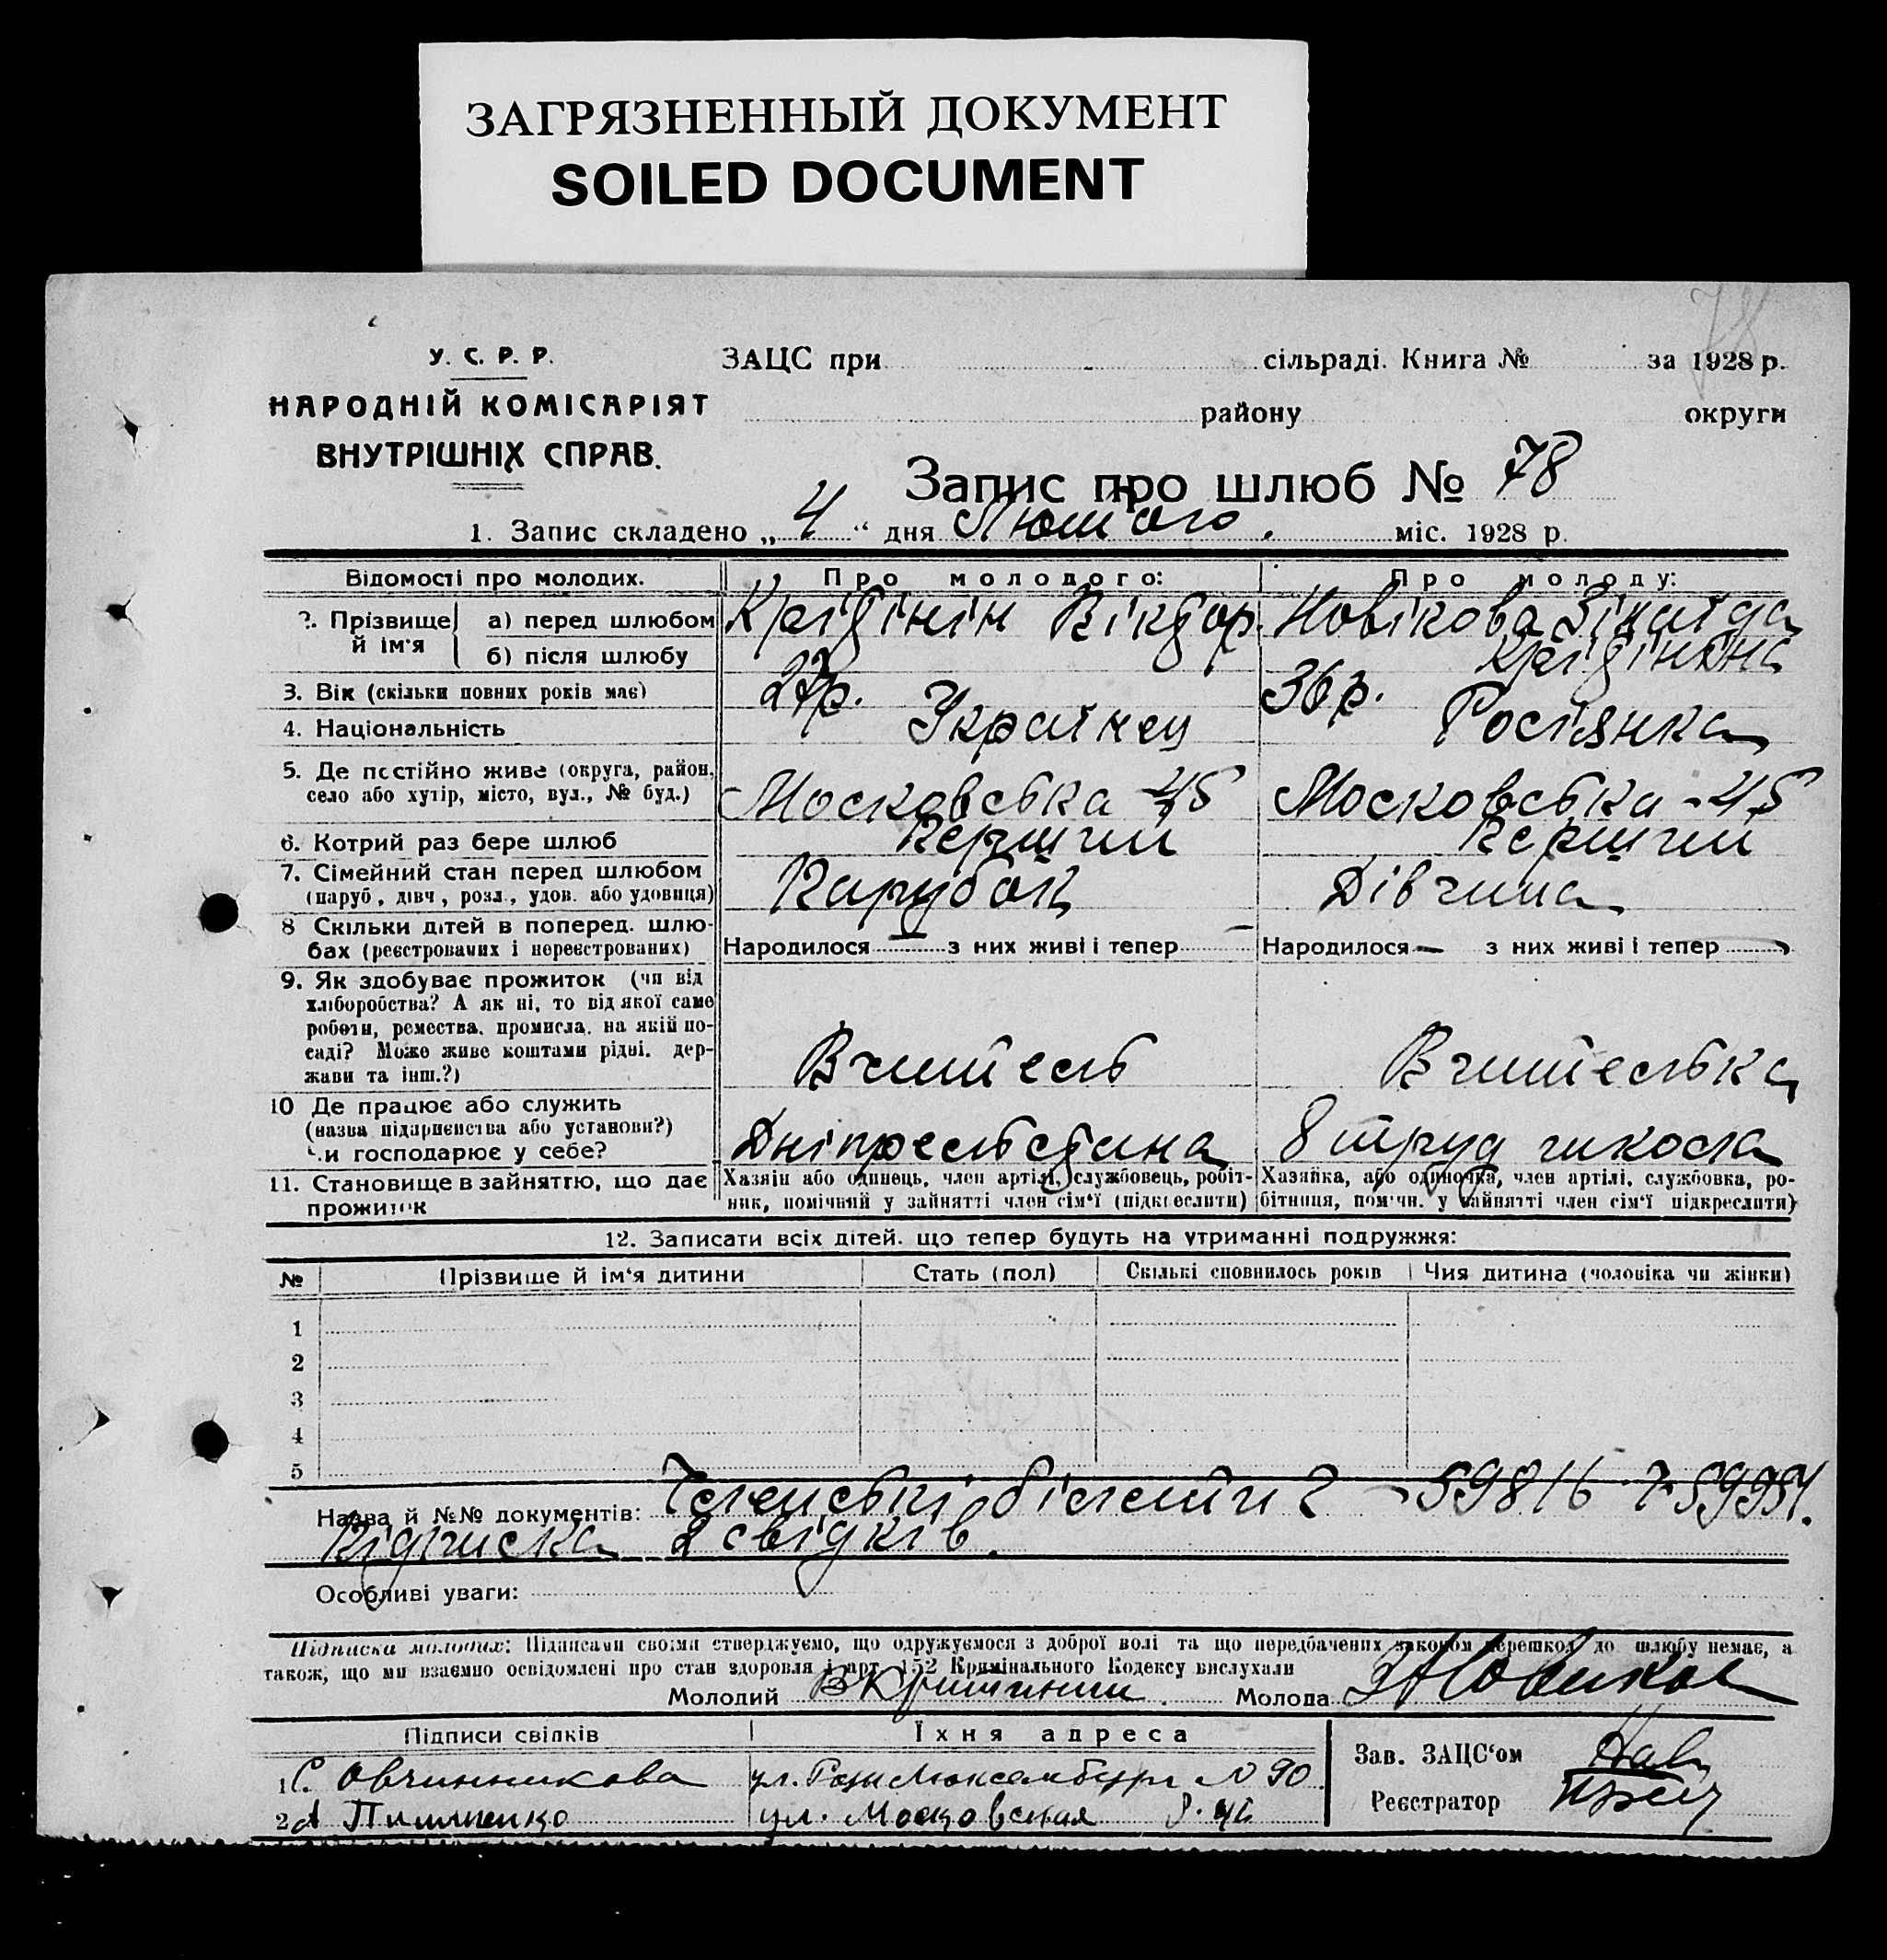 ЗАГРЯЗНЕННЫЙ ДОКУМЕНТ
SOILED DOCUMENT
78
У. С. Р. Р.
НАРОДНІЙ КОМІСАРІЯТ
ВНУТРІШНІХ СПРАВ.
ЗАЦС при сільраді. Книга № за 1928 р.
району округи
Запис про шлюб № 78
1. Запис складено „ 4 “ дня Лютого. міс. 1928 р.
Відомості про молодих. Про молодого: Про молоду:
2. Прізвище й ім'я
а) перед шлюбом Віктор Новікова Зінаїда
б) після шлюбу
3. Вік (скільки повних років має) 27 р. 36 р.
4. Національність Украінец Росіянка
5. Де постійно живе (округа, район,
село або хутір, місто, вул., № буд.) Московська - 45 Московська - 45
6. Котрий раз бере шлюб Перший Перший
7. Сімейний стан перед шлюбом
(паруб, дівч, розл., удов. або удовиця) Парубок Дівчина
8 Скільки дітей в поперед. шлю-
бах (реєстрованих і нереєстрованих) Народилося — з них живі і тепер — Народилося — з них живі і тепер —
9. Як здобуває прожиток (чи від
хліборобства? А як ні, то від якої саме
роботи, ремества, промисла, на якій по-
саді? Може живе коштами рідні, дер-
жави та інш.?) Вчитель Вчителька
10 Де працює або служить
(назва підприємства або установи?)
Чи господарює у себе? 8 труд школа
11. Становище в зайняттю, що дає
прожиток
Хазяін або одинець, член артілі, службовець, робіт-
ник, помічний у зайнятті член сім'ї (підкреслити)
Хазяйка, або одиночка, член артілі, службовка, ро-
бітниця, помічн. у зайнятті член сім'ї підкреслити)
12. Записати всіх дітей, що тепер будуть на утриманні подружжя:
№ Прізвище й ім'я дитини Стать (пол) Скількі сповнилось років Чия дитина (чоловіка чи жінки)
1
2
3
4
5
Назва й №№ документів: Членські білети 59816
Підписка 2 свідків.
Особливі уваги:
Підписка молодих: Підписами своіми стверджуємо, що одружуємося з доброї волі та що передбачених законом перешкод до шлюбу немає, а
також, що ми взаємно освідомлені про стан здоровля і арт. 152 Кримінального Кодексу вислухали
Молодий Молода
Підписи свідків Їхня адреса
1 С. Овчинникова ул. Розы Люксембург N 90
2 А ул. Московская
Зав. ЗАЦС'ом
Реєстратор